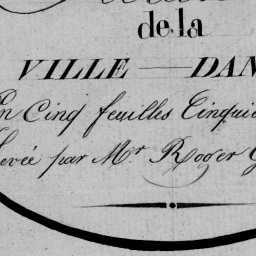 de la
VILLE — DAN
En Cinq feuilles Cinqui
Levée par Mr Roger G